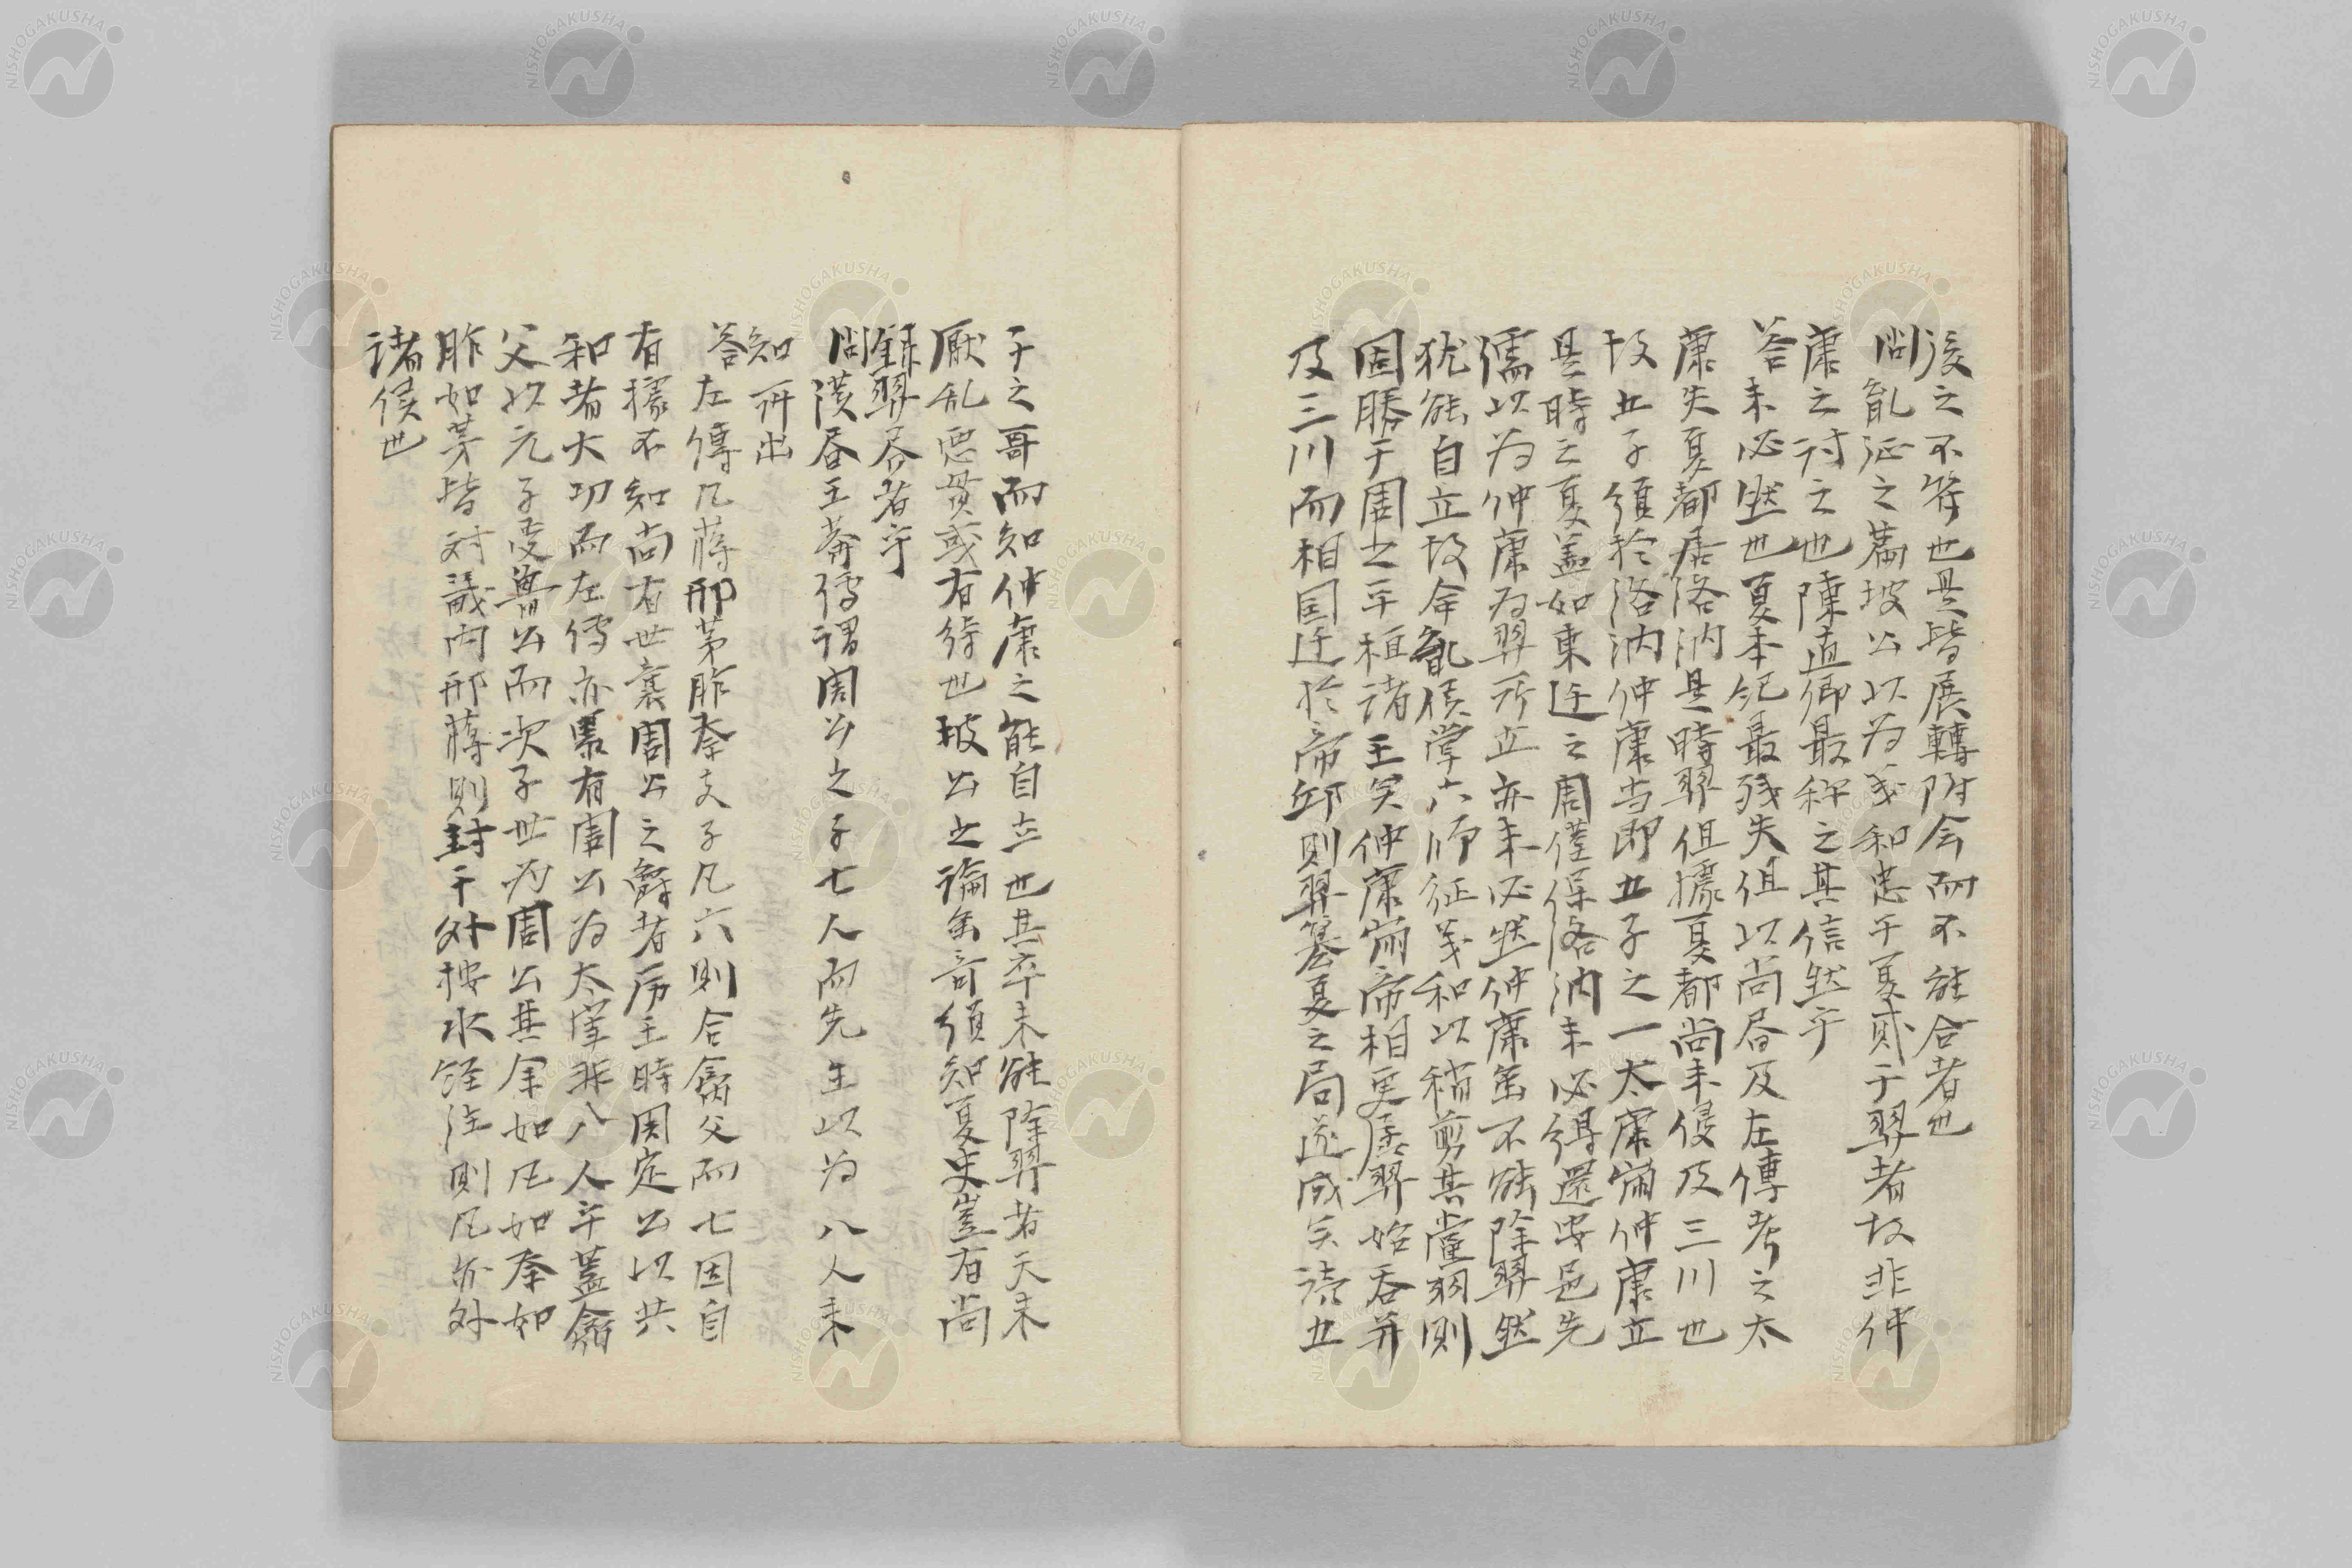 後之不符也是皆展轉附会而不能合者也
問胤征之篇坡公以为羲和忠于夏貳于羿者故非仲
康之討之也陳直卿最称之其信然乎
答未必然也夏本紀最残失但以尚書及左傳考之太
康失夏都居洛汭是時羿但據夏都尚未侵及三川也
故五子須於洛汭仲康当即五子之一太康崩仲康立
是時之夏蓋如東迁之周僅保洛汭未必得還安邑先
儒以为仲康为羿所立亦未必然仲康虽不能除羿然
犹能自立故命胤侯掌六师征羲和以稍剪其黨羽則
固勝于周之平桓諸王矣仲康崩帝相更孱羿始吞并
及三川而相国迁於帝邱則羿篡夏之局遂成矣讀五
子之哥而知仲康之能自立也其卒未能除羿者天未
厭乱惡貫或有待也坡公之論虽奇須知夏史豈有尚
録羿書者乎
問漢書王莽傳謂周公之子七人而先生以为八人未
知所出
答左傳凡蒋邢茅胙祭支子凡六則合禽父而七固自
有據不知尚有世襄周公之爵者厉王時周定公以共
和著大功而左傳亦累有周公为太宰非八人乎蓋禽
父以元子受魯公而次子世为周公其余如凡如祭如
胙如茅皆对畿内邢蒋則封于外按水経注則凡亦外
諸侯也
NISHOGAKUSHA